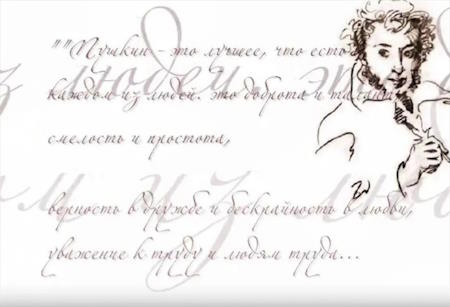 ""Пушкин - это лучшее, что есть в
каждом из людей. это доброта и талант,
смелость и простота,
верность в дружбе и бескрайность в любви,
уважение к труду и людям труда...